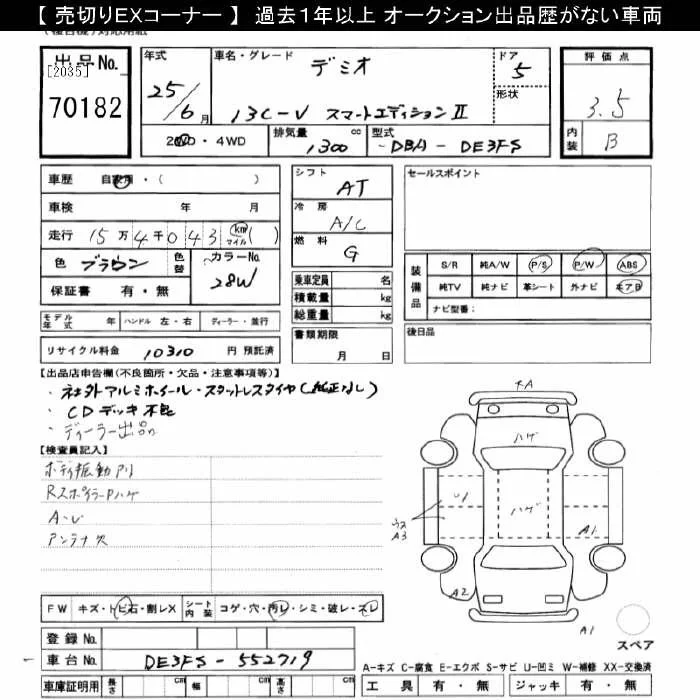 【 売切りEXコーナー 】 過去1年以上 オークション出品歴がない車両
出品No.
[2035]
70182
年式
25/6月
車名・グレード
デミオ
13C-V スマートエディションⅡ
ドア
5
形状
評価点
3.5
内装
B
2WD・4WD
排気量 1300 cc
型式 -DBA-DE3FS
車歴 自家用・( )
車検 年 月
走行 15万4千043 km マイル ( )
色 ブラウン
色替
カラーNo. 28W
保証書 有・無
モデル年式 年
ハンドル 左・右
ディーラー・並行
リサイクル料金 10310 円 預託済
シフト AT
冷房 A/C
燃料 G
乗車定員 名
積載量 kg
総重量 kg
書類期限
月 日
セールスポイント
装備品
S/R 純A/W P/S P/W ABS
純TV 純ナビ 革シート 外ナビ エアB
ナビ型番:
後日品
【出品店申告欄(不良箇所・欠品・注意事項等)】
・社外アルミホイール・スタットレスタイヤ(純正なし)
・CDデッキ不良
・ディーラー出品
【検査員記入】
ボディ振動アリ
RスポイラーPハゲ
A・U
アンテナ欠
FW キズ・トビ石・割レX
シート内装 コゲ・穴・汚レ・シミ・破レ・スレ
登録No.
車台No. DE3FS-552719
車庫証明用 長さ cm 幅 cm 高さ cm
ハゲ
U1
ハゲ
A3
A1
A2
A1
スペア
A-キズ C-腐食 E-エクボ S-サビ U-凹ミ W-補修 XX-交換済
工具 有・無 ジャッキ 有・無